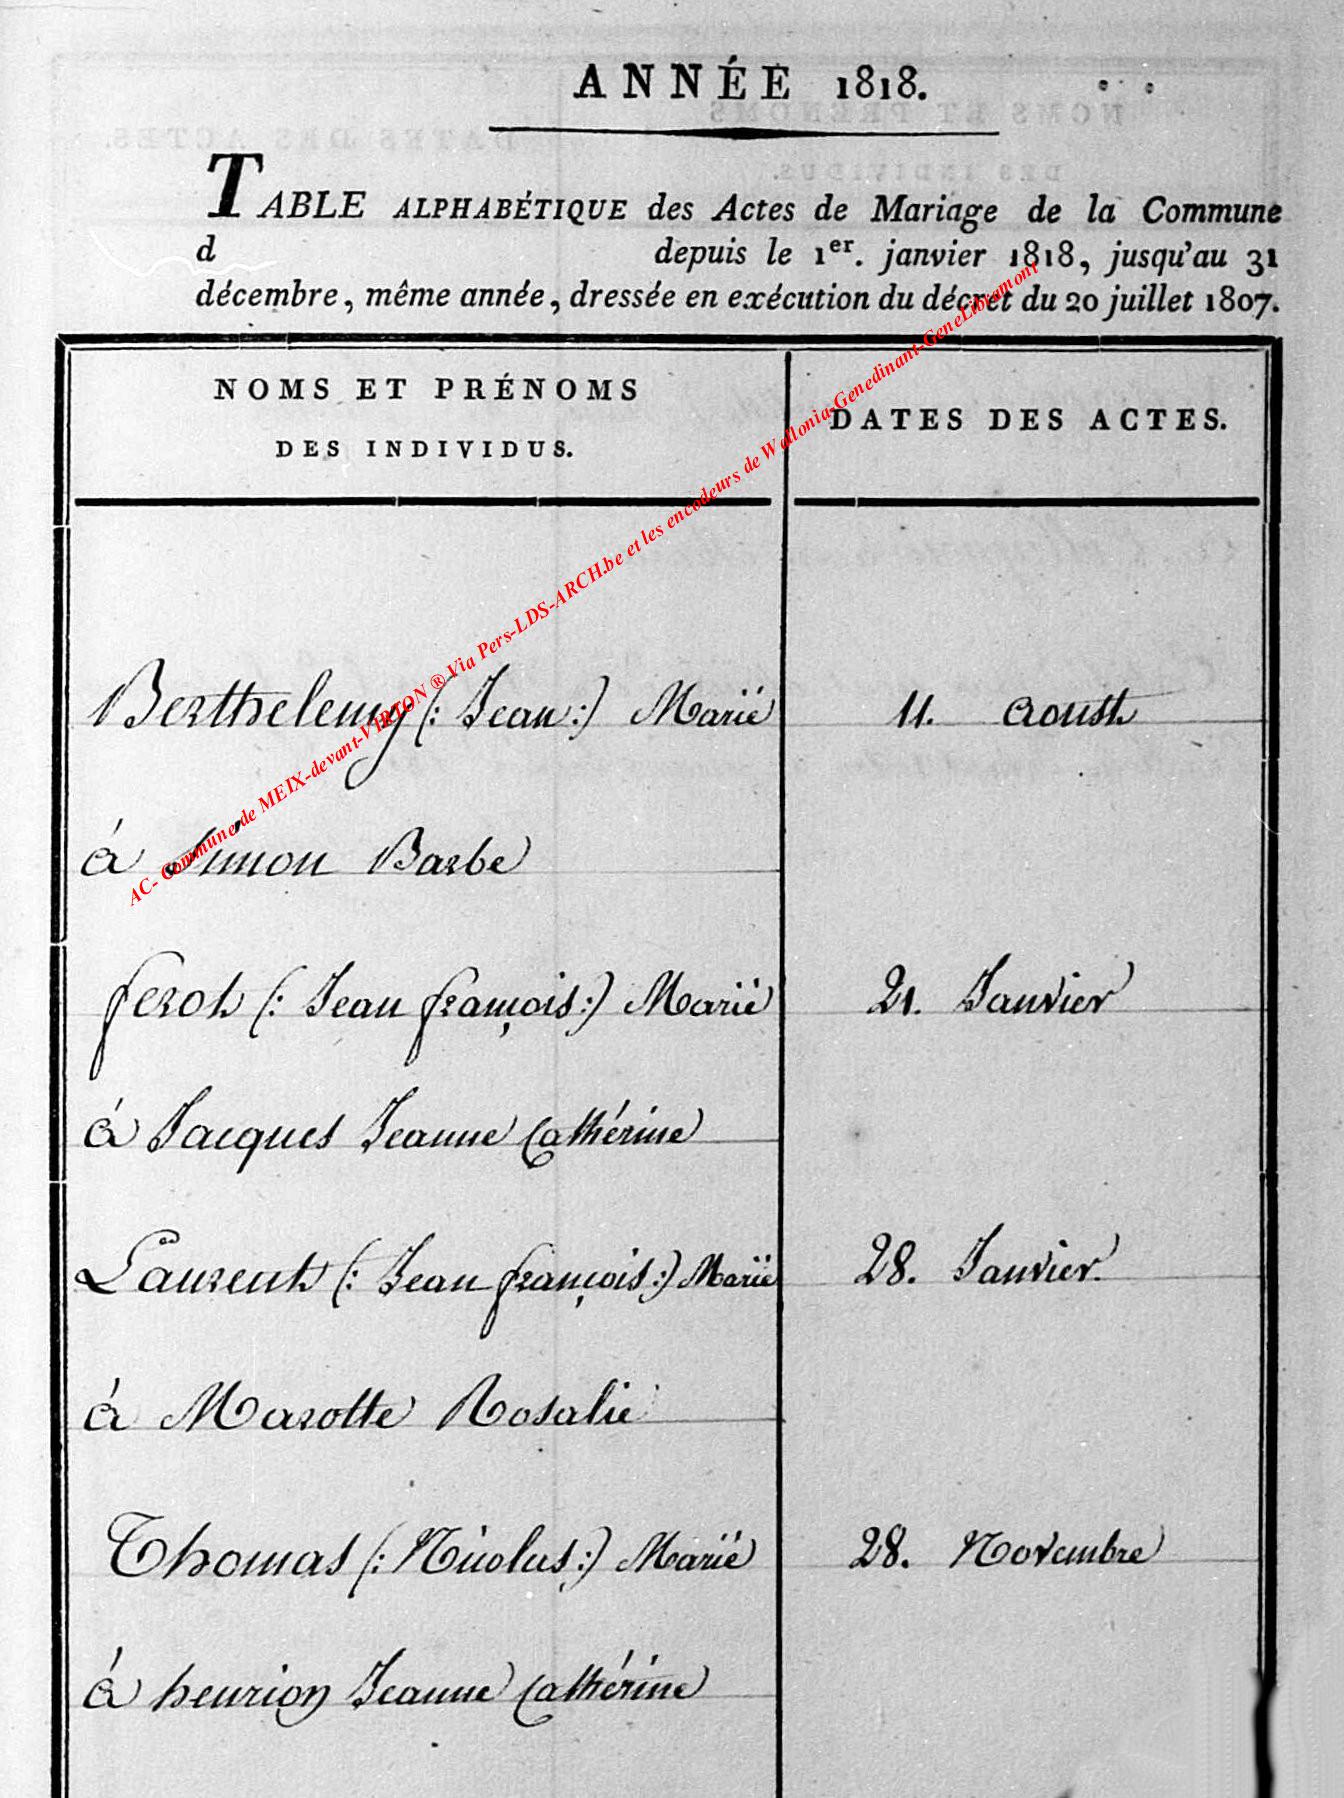 ANNÉE 1818.
TABLE ALPHABÉTIQUE des Actes de Mariage de la Commune
d depuis le 1er. janvier 1818, jusqu'au 31
décembre, même année, dressée en exécution du décret du 20 juillet 1807.
NOMS ET PRÉNOMS
DES INDIVIDUS.
DATES DES ACTES.
AC- Commune de MEIX-devant-VIRTON ® Via Pers-LDS-ARCH.be et les encodeurs de Wallonia-Genedinant-GeneLibramont
Berthelemy (: Jean :) Marié 11. Aoust
á Simon Barbe
ferot (: Jean françois :) Marié 21. Janvier
á Jacques Jeanne Cathérine
Laurent (: Jean françois :) Marié 28. Janvier.
á Marotte Rosalie
Thomas (: Nicolas :) Marié 28. Novembre
á henrion Jeanne Cathérine